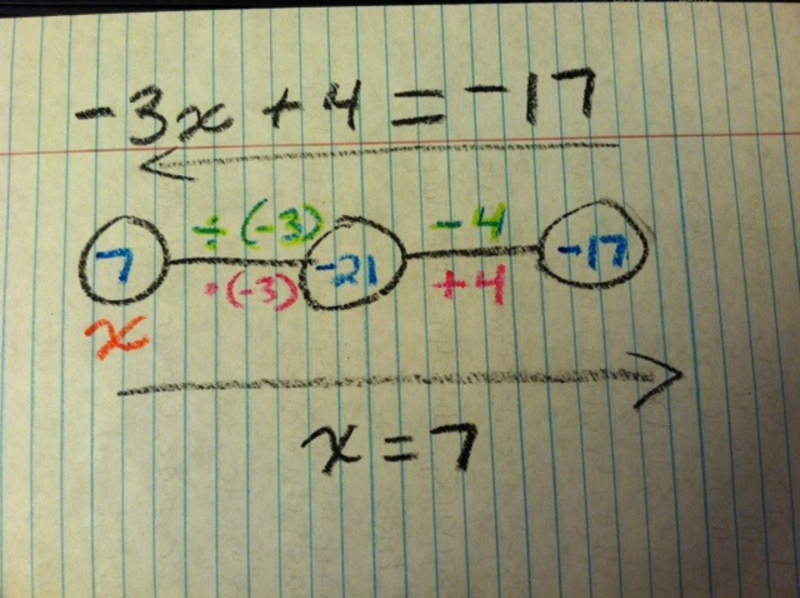 -3x + 4 = -17
÷ (-3) - 4
7 -21 -17
· (-3) + 4
x
x = 7